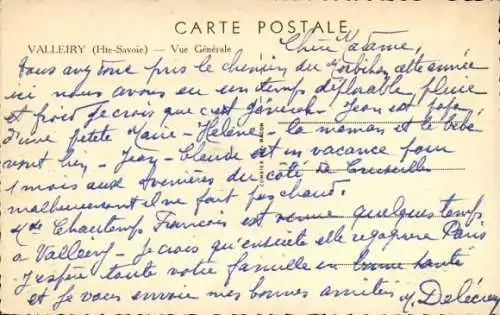 CARTE POSTALE
VALLEIRY (Hte-Savoie) — Vue Générale
Chère Madame,
Vous avez donc pris le chemin du Morbihan cette année
ici nous avons eu un temps déplorable, pluie
et froid je crois que c'est général - Jean est papa
d'une petite Marie-Hélène - la maman et le bébé
vont bien - Jean-Claude est en vacance pour
1 mois aux du côté de Cruseilles
malheureusement il ne fait pas chaud.
Mde Chautemps François est venue quelques temps
à Valleiry - je crois qu'ensuite elle regagnera Paris
J'espère toute votre famille en bonne santé
et je vous envoie mes bonnes amitiés